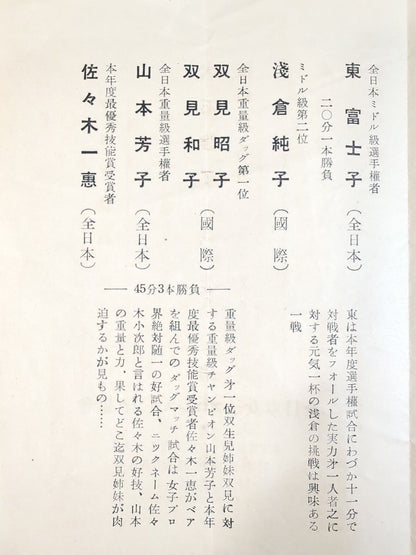 全日本ミドル級選手権者
東富士子(全日本)
二〇分一本勝負
ミドル級第二位
淺倉純子(國際)
全日本重量級ダッグ第一位
双見昭子
双見和子(國際)
全日本重量級選手権者
山本芳子(全日本)
本年度最優秀技能賞受賞者
佐々木一惠(全日本)
東は本年度選手権試合にわづか十一分で
対戦者をフォールした実力才一人者之に
対する元気一杯の浅倉の挑戦は興味ある
一戦
45分3本勝負
重量級ダッグ才一位双生児姉妹双見に対
する重量級チャンピオン山本芳子と本年
度最優秀技能賞受賞者佐々木一恵がペア
を組んでのダッグマッチ試合は女子プロ
界絶対随一の好試合、ニックネーム佐々
木小次郎と言はれる佐々木の好技、山本
の重量と力、果してどこ迄双見姉妹が肉
迫するかが見もの……